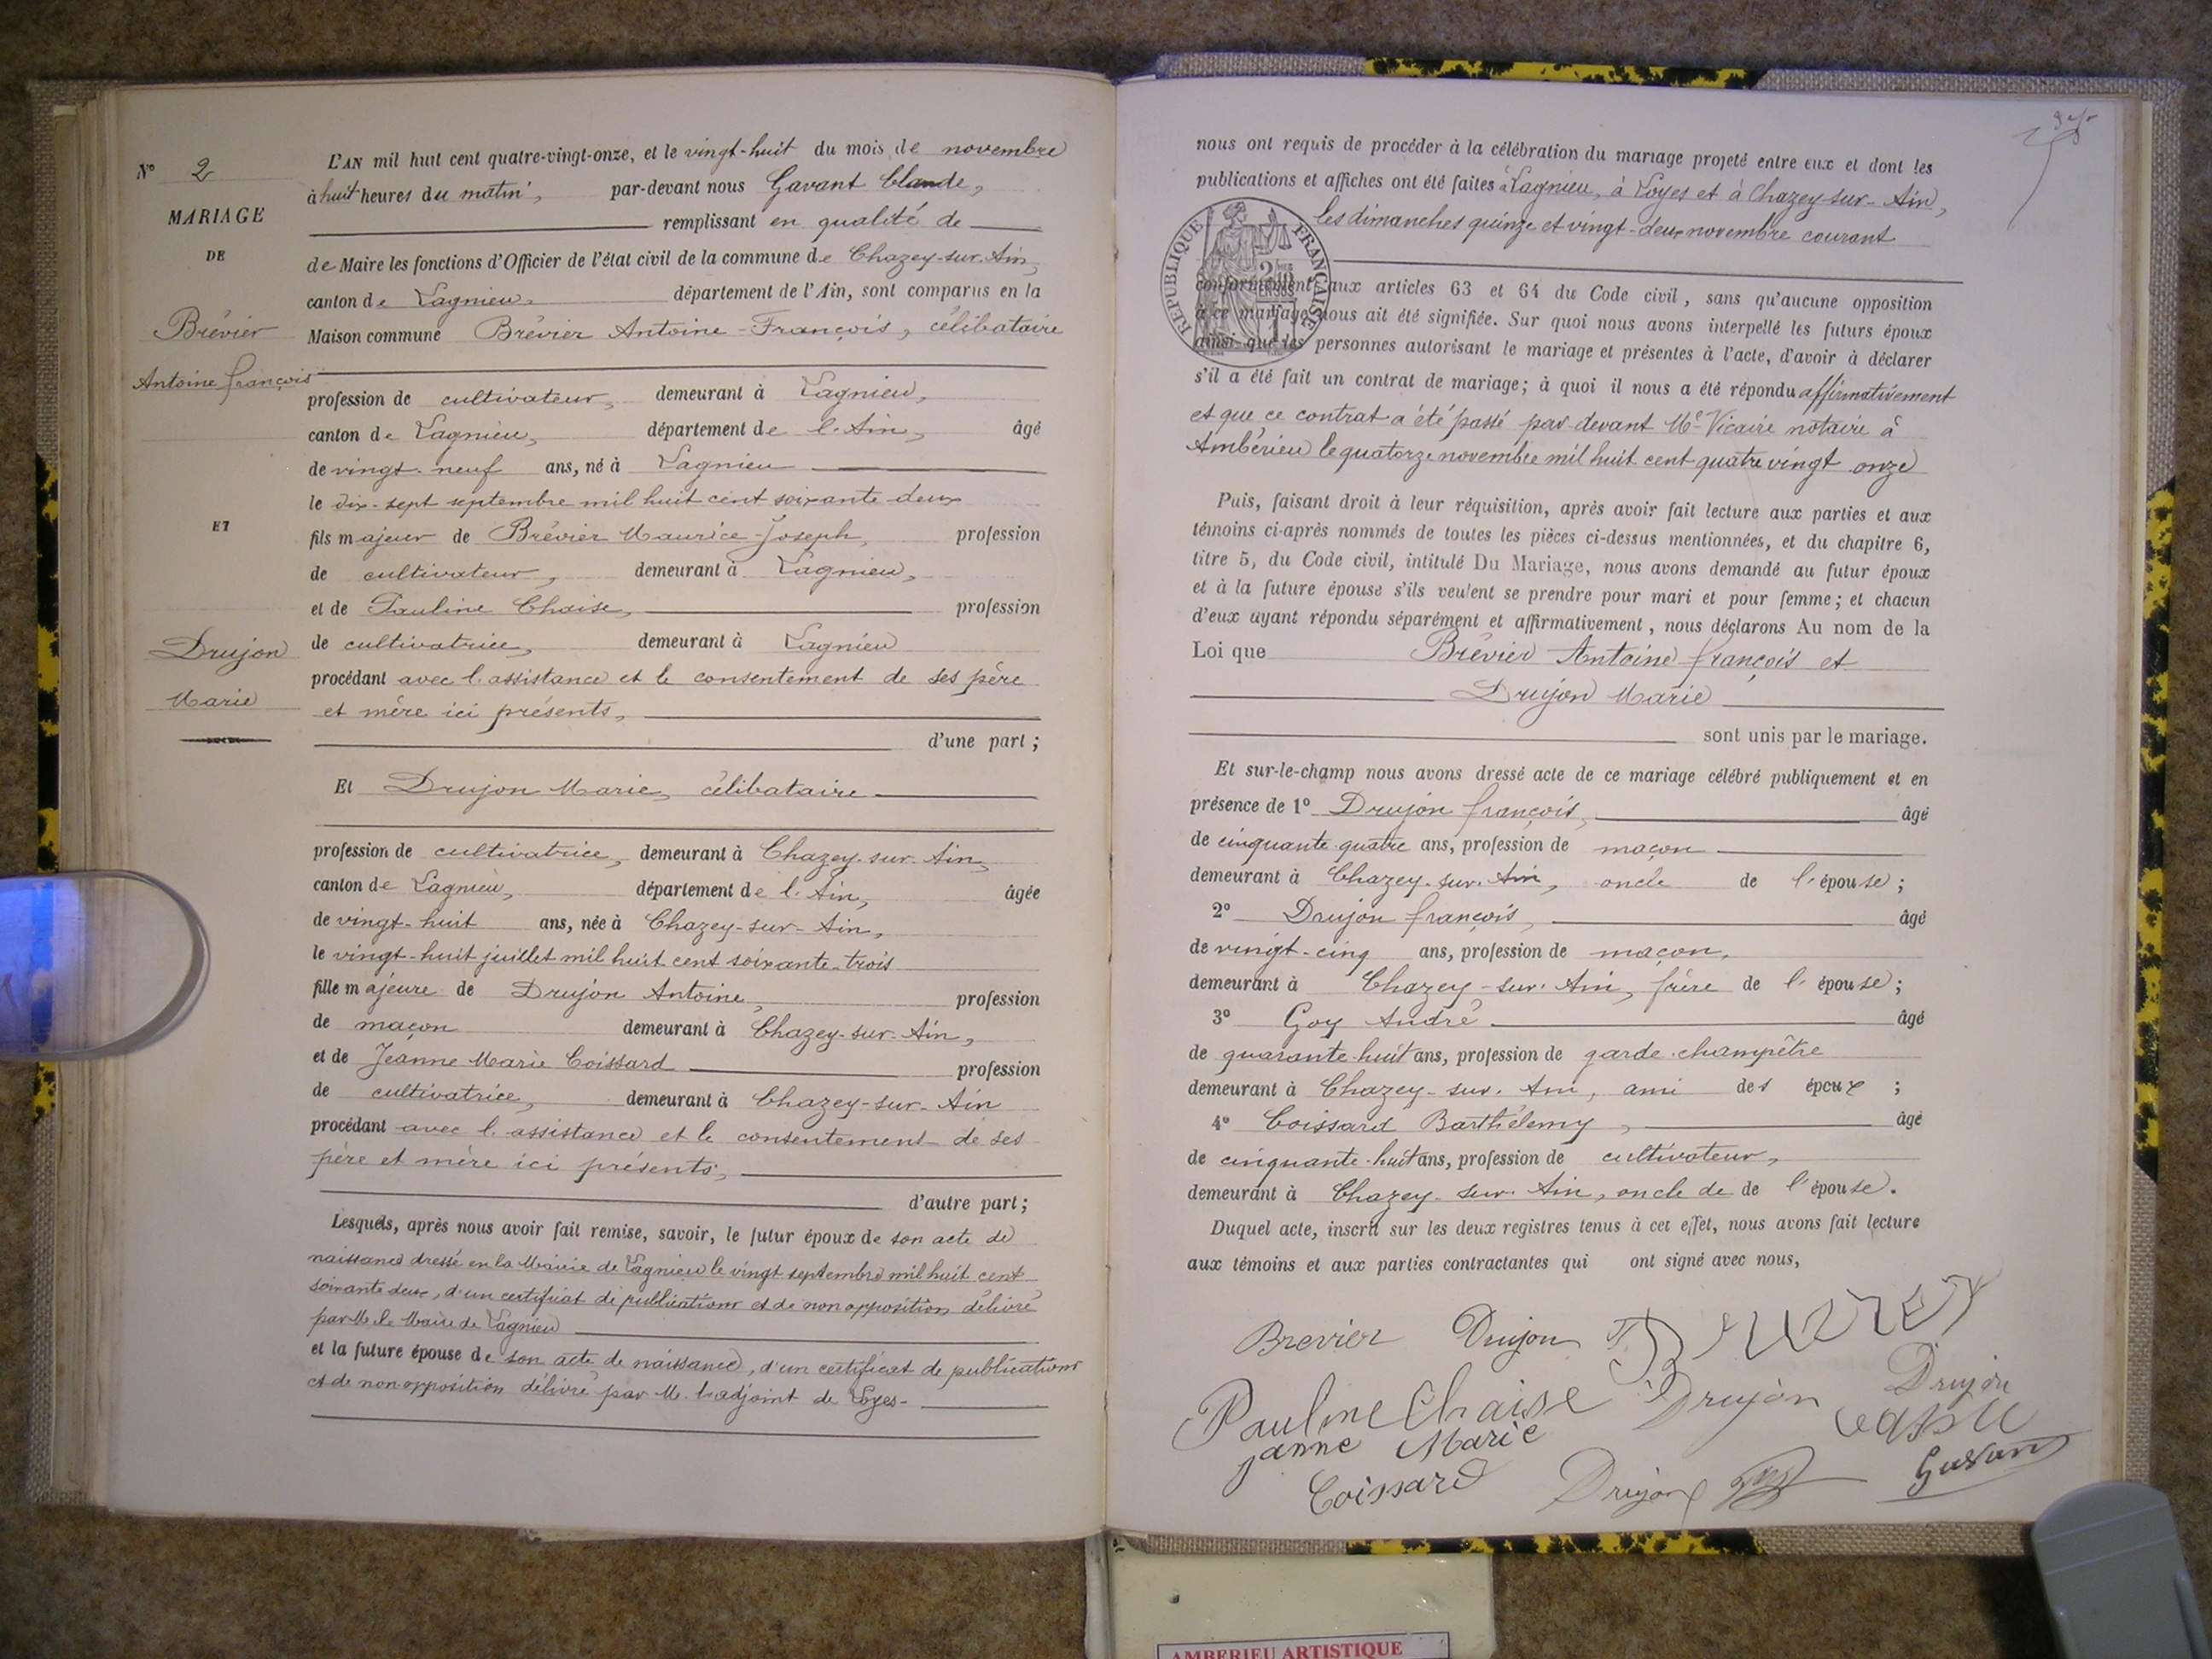 N° 2
MARIAGE
DE
Brévier
Antoine françois
ET
Drujon
Marie
L'AN mil huit cent quatre-vingt-onze, et le vingt-huit du mois de novembre
à huit heures du matin, par-devant nous Gavant Claude,
remplissant en qualité de
de Maire les fonctions d'Officier de l'état civil de la commune de Chazey-sur-Ain,
canton de Lagnieu, département de l'Ain, sont comparus en la
Maison commune Brévier Antoine-François, célibataire
profession de cultivateur, demeurant à Lagnieu,
canton de Lagnieu, département de l'Ain, âgé
de vingt-neuf ans, né à Lagnieu
le dix-sept septembre mil huit cent soixante-deux
fils majeur de Brévier Maurice-Joseph, profession
de cultivateur, demeurant à Lagnieu,
et de Pauline Chaise, profession
de cultivatrice, demeurant à Lagnieu
procédant avec l'assistance et le consentement de ses père
et mère ici présents,
d'une part ;
Et Drujon Marie, célibataire
profession de cultivatrice, demeurant à Chazey-sur-Ain,
canton de Lagnieu, département de l'Ain, âgée
de vingt-huit ans, née à Chazey-sur-Ain,
le vingt-huit juillet mil huit cent soixante-trois
fille majeure de Drujon Antoine, profession
de maçon demeurant à Chazey-sur-Ain,
et de Jeanne Marie Coissard profession
de cultivatrice, demeurant à Chazey-sur-Ain
procédant avec l'assistance et le consentement de ses
père et mère ici présents,
d'autre part ;
Lesquels, après nous avoir fait remise, savoir, le futur époux de son acte de
naissance dressé en la Mairie de Lagnieu le vingt septembre mil huit cent
soixante deux, d'un certificat de publications et de non opposition délivré
par M. le Maire de Lagnieu
et la future épouse de son acte de naissance, d'un certificat de publications
et de non opposition délivré par M. l'adjoint de Loyes-
nous ont requis de procéder à la célébration du mariage projeté entre eux et dont les
publications et affiches ont été faites à Lagnieu, à Loyes et à Chazey-sur-Ain,
les dimanches quinze et vingt-deux novembre courant
RÉPUBLIQUE FRANÇAISE
conformément aux articles 63 et 64 du Code civil, sans qu'aucune opposition
à ce mariage nous ait été signifiée. Sur quoi nous avons interpellé les futurs époux
ainsi que les personnes autorisant le mariage et présentes à l'acte, d'avoir à déclarer
s'il a été fait un contrat de mariage ; à quoi il nous a été répondu affirmativement
et que ce contrat a été passé par devant Me Vicaire notaire à
Ambérieu le quatorze novembre mil huit cent quatre vingt onze
Puis, faisant droit à leur réquisition, après avoir fait lecture aux parties et aux
témoins ci-après nommés de toutes les pièces ci-dessus mentionnées, et du chapitre 6,
titre 5, du Code civil, intitulé Du Mariage, nous avons demandé au futur époux
et à la future épouse s'ils veulent se prendre pour mari et pour femme ; et chacun
d'eux ayant répondu séparément et affirmativement, nous déclarons Au nom de la
Loi que Brévier Antoine françois et
Drujon Marie
sont unis par le mariage.
Et sur-le-champ nous avons dressé acte de ce mariage célébré publiquement et en
présence de 1° Drujon françois, âgé
de cinquante-quatre ans, profession de maçon
demeurant à Chazey-sur-Ain, oncle de l'épouse ;
2° Drujon françois, âgé
de vingt-cinq ans, profession de maçon,
demeurant à Chazey-sur-Ain, frère de l'épouse ;
3° Goy André âgé
de quarante-huit ans, profession de garde-champêtre
demeurant à Chazey-sur-Ain, ami des époux ;
4° Coissard Barthélemy, âgé
de cinquante-huit ans, profession de cultivateur,
demeurant à Chazey-sur-Ain, oncle de de l'épouse.
Duquel acte, inscrit sur les deux registres tenus à cet effet, nous avons fait lecture
aux témoins et aux parties contractantes qui ont signé avec nous,
Brevier Drujon
Pauline Chaise Drujon Drujon
janne Marie
Coissard Drujon Gavant
AMBERIEU ARTISTIQUE